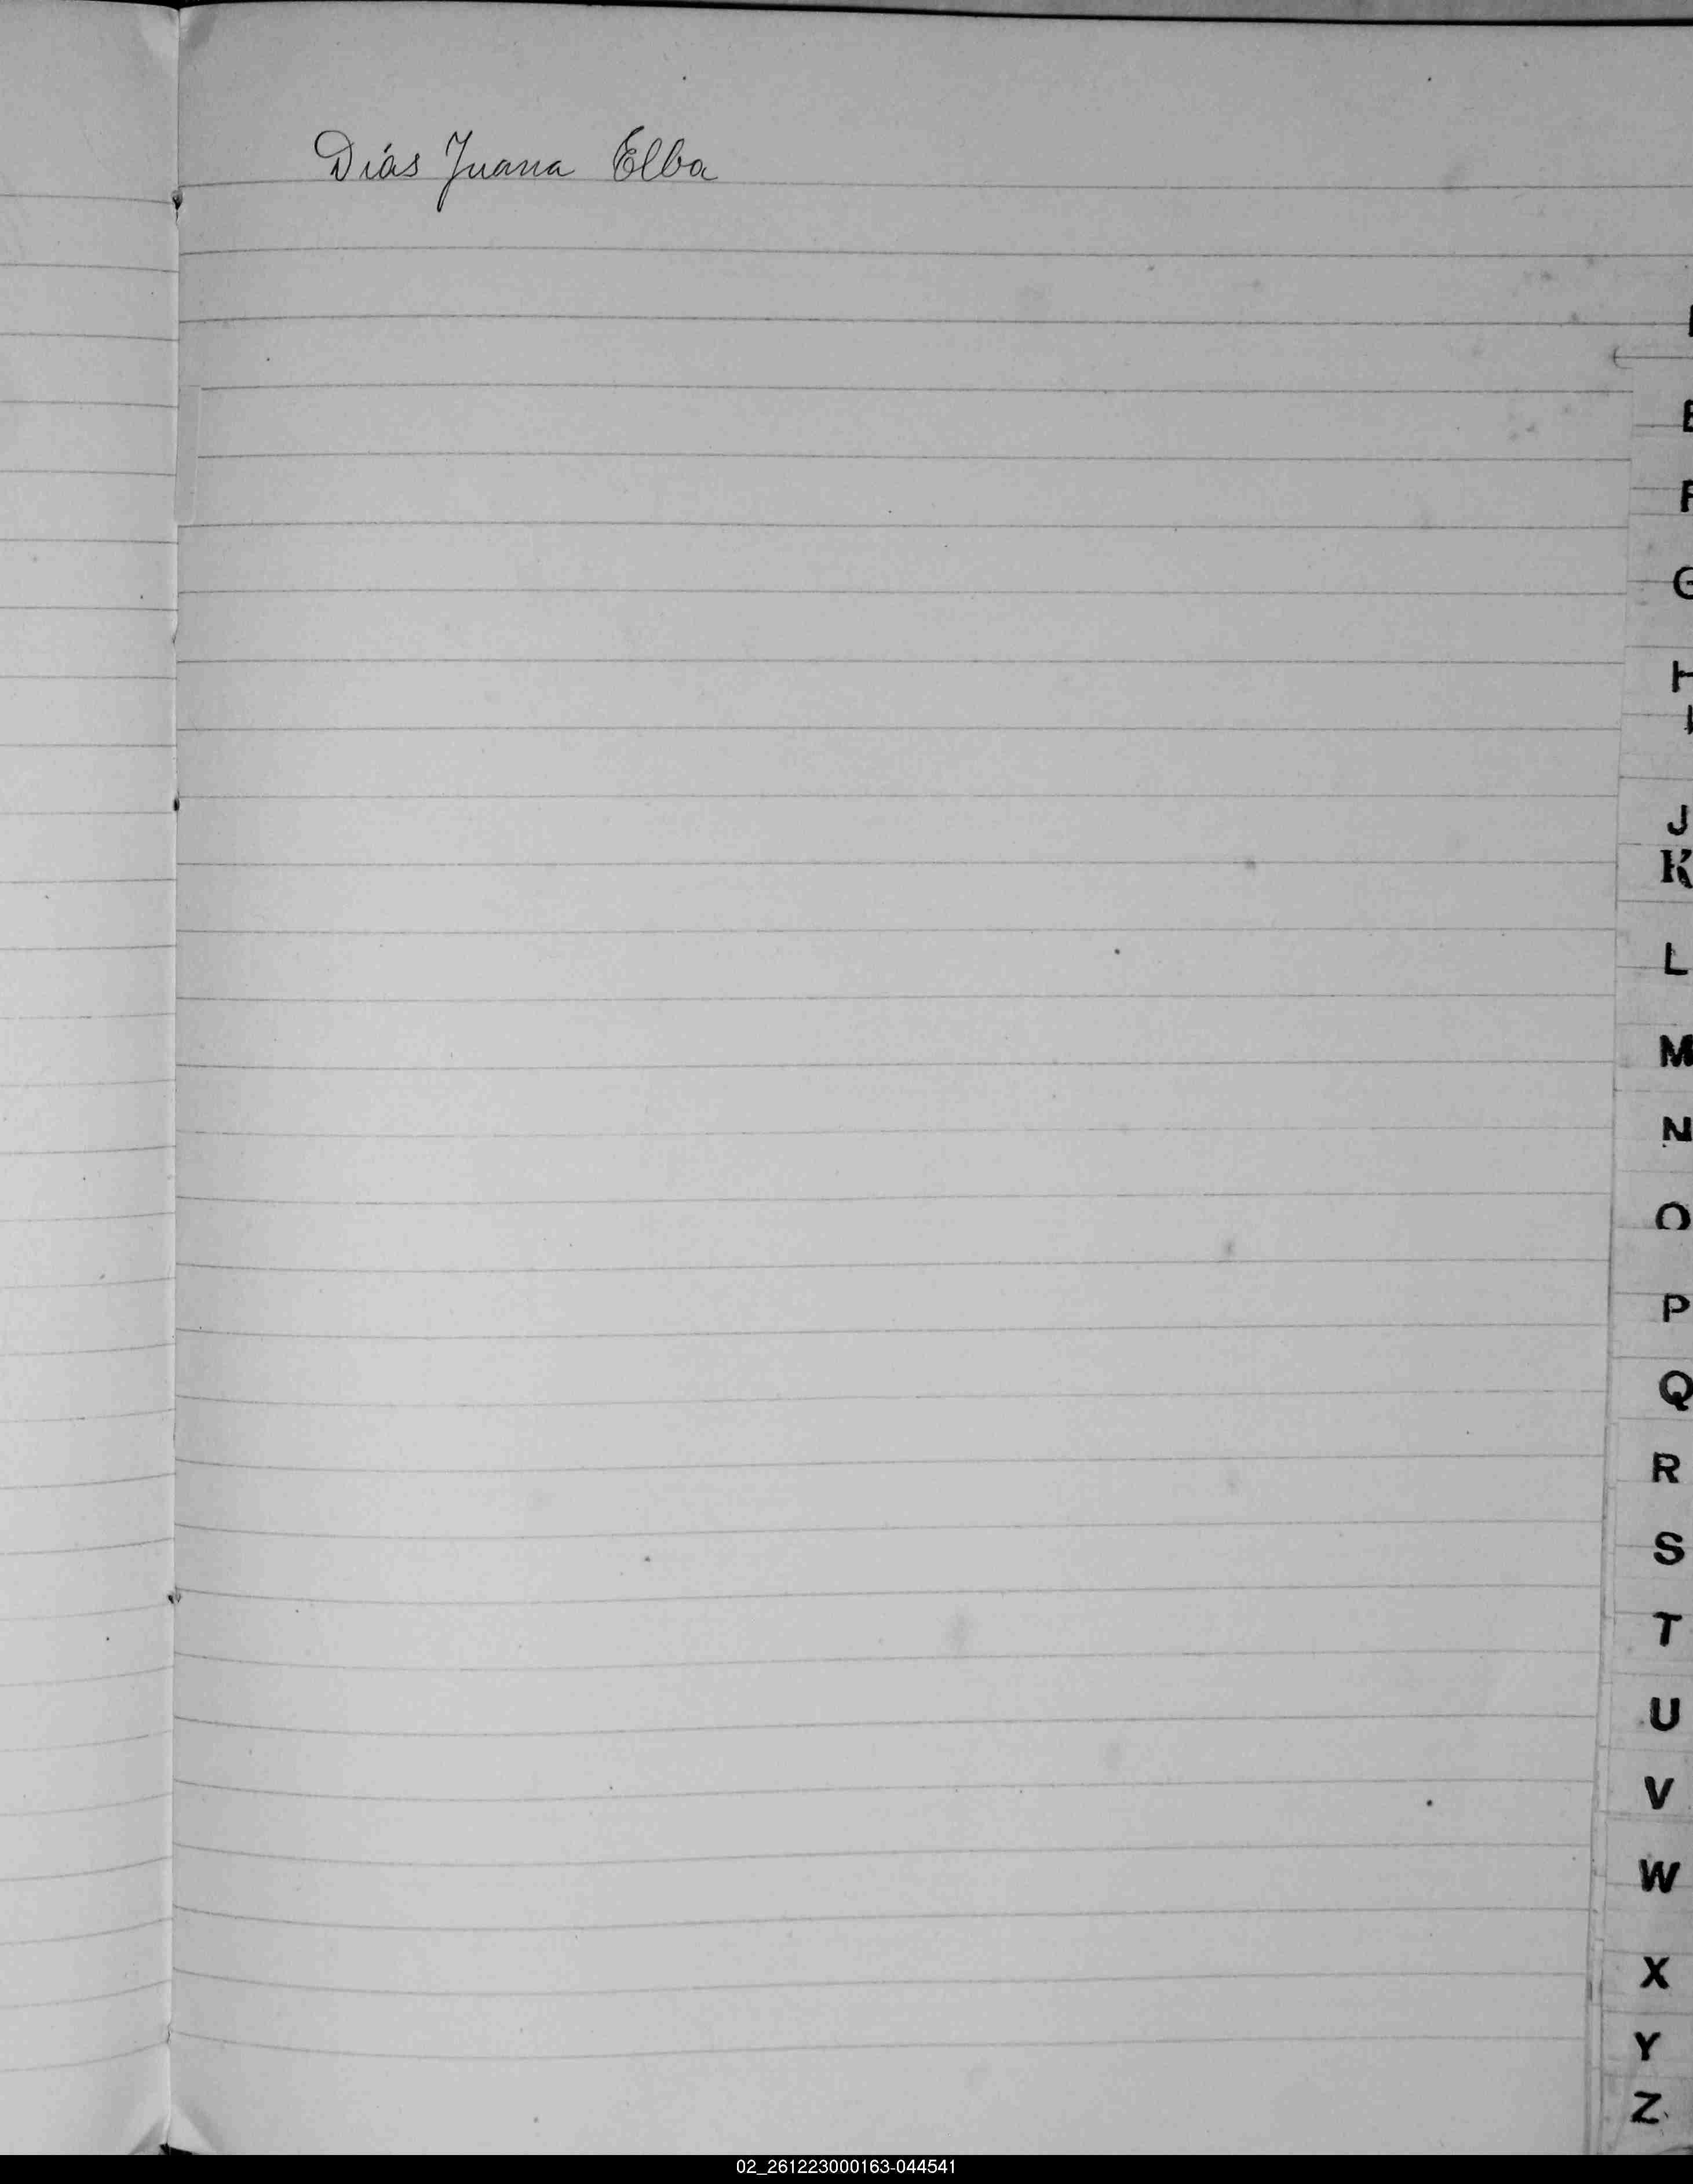 Diás Juana Elba
E
F
G
H
I
J
K
L
M
N
O
P
Q
R
S
T
U
V
W
X
Y
Z
02_261223000163-044541